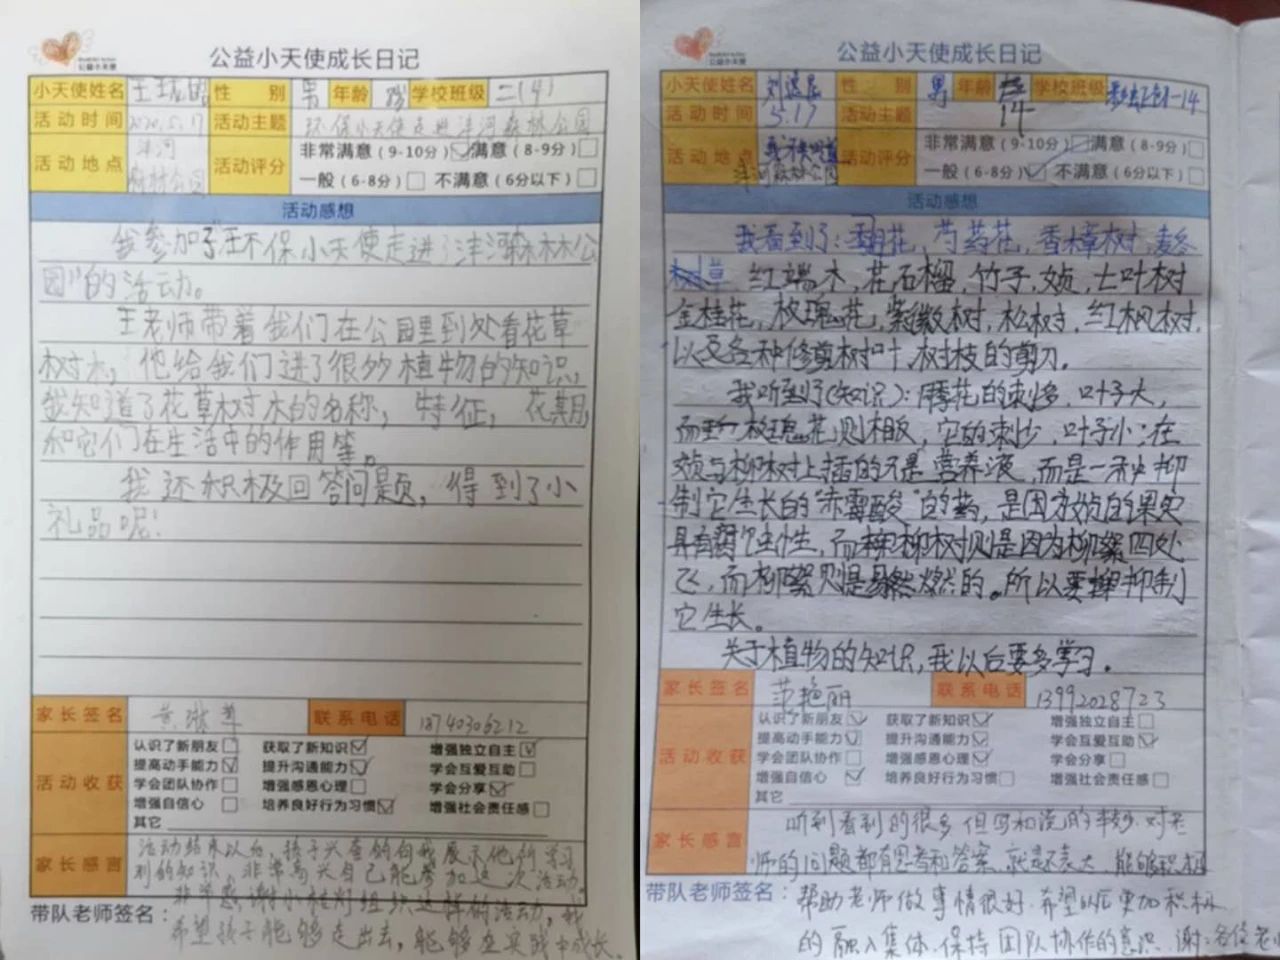 公益小天使
公益小天使成长日记
小天使姓名 王 性 别 男 年龄 学校班级 二(4)
活动时间 2020.5.17 活动主题 环保小天使走进沣河森林公园
活动地点 沣河 活动评分 非常满意(9-10分) 满意(8-9分)
森林公园 一般(6-8分) 不满意(6分以下)
活动感想
我参加了“环保小天使走进了沣河森林公
园”的活动。
王老师带着我们在公园里到处看花草
树木,他给我们进了很多植物的知识,
我知道了花草树木的名称,特征,花期,
和它们在生活中的作用等。
我还积极回答问题,得到了小
礼品呢!
家长签名 黄 联系电话 18740306212
活动收获
认识了新朋友 获取了新知识 增强独立自主
提高动手能力 提升沟通能力 学会互爱互助
学会团队协作 增强感恩心理 学会分享
增强自信心 培养良好行为习惯 增强社会责任感
其它
家长感言 活动结束以后,孩子兴奋的向我展示他所学习
到的知识,非常高兴自己能参加这次活动。
非常感谢小桔灯组织这样的活动,我
带队老师签名: 希望孩子能够走出去,能够在实践中成长。
公益小天使
公益小天使成长日记
小天使姓名 刘 性 别 男 年龄 14 学校班级 一14
活动时间 5.17 活动主题
活动地点 沣河森林公园 活动评分 非常满意(9-10分) 满意(8-9分)
一般(6-8分) 不满意(6分以下)
活动感想
我看到了:花,芍药花,香樟树,麦冬
草 红端木,花石榴,竹子,女贞,七叶树
金桂花,玫瑰花,紫微树,松树,红枫树,
以及各种修剪树叶,树枝的剪刀。
我听到了(知识):月季花的刺多,叶子大,
而玫瑰花则相反,它的刺少,叶子小;在
女贞与柳树上插的不是营养液,而是一种抑
制它生长的“赤霉酸”的药,是因为女贞的果实
具有腐蚀性,而柳树则是因为柳絮四处
飞,而柳絮则是易燃的。所以要抑制
它生长。
关于植物的知识,我以后要多学习。
家长签名 范艳丽 联系电话 13992028723
活动收获
认识了新朋友 获取了新知识 增强独立自主
提高动手能力 提升沟通能力 学会互爱互助
学会团队协作 增强感恩心理 学会分享
增强自信心 培养良好行为习惯 增强社会责任感
其它
家长感言 听到看到的很多但写和说的太少,对老
师的问题都有思考和答案,就是不表达,能够积极
带队老师签名: 帮助老师做事情很好,希望以后更加积极
的融入集体,保持团队协作的意识,谢谢各位老师